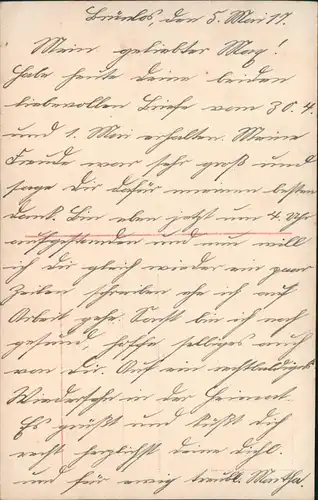 Brünlos, den 5. Mai 17.
Mein geliebter Max!
Habe heute deine beiden
liebevollen Briefe vom 30.4.
und 1. Mai erhalten. Meine
Freude war sehr groß und
sage Dir dafür meinen besten
Dank. Bin eben jetzt um 4 Uhr
aufgestanden und nun will
ich Dir gleich wieder ein paar
Zeilen schreiben ehe ich auf
Arbeit gehe. Sonst bin ich noch
gesund, hoffe selbiges auch
von Dir. Auf ein rechtbaldiges
Wiedersehn in der Heimat.
Es grüßt und küßt Dich
recht herzlichst deine Dichl.
und für ewig treulb. Martha.